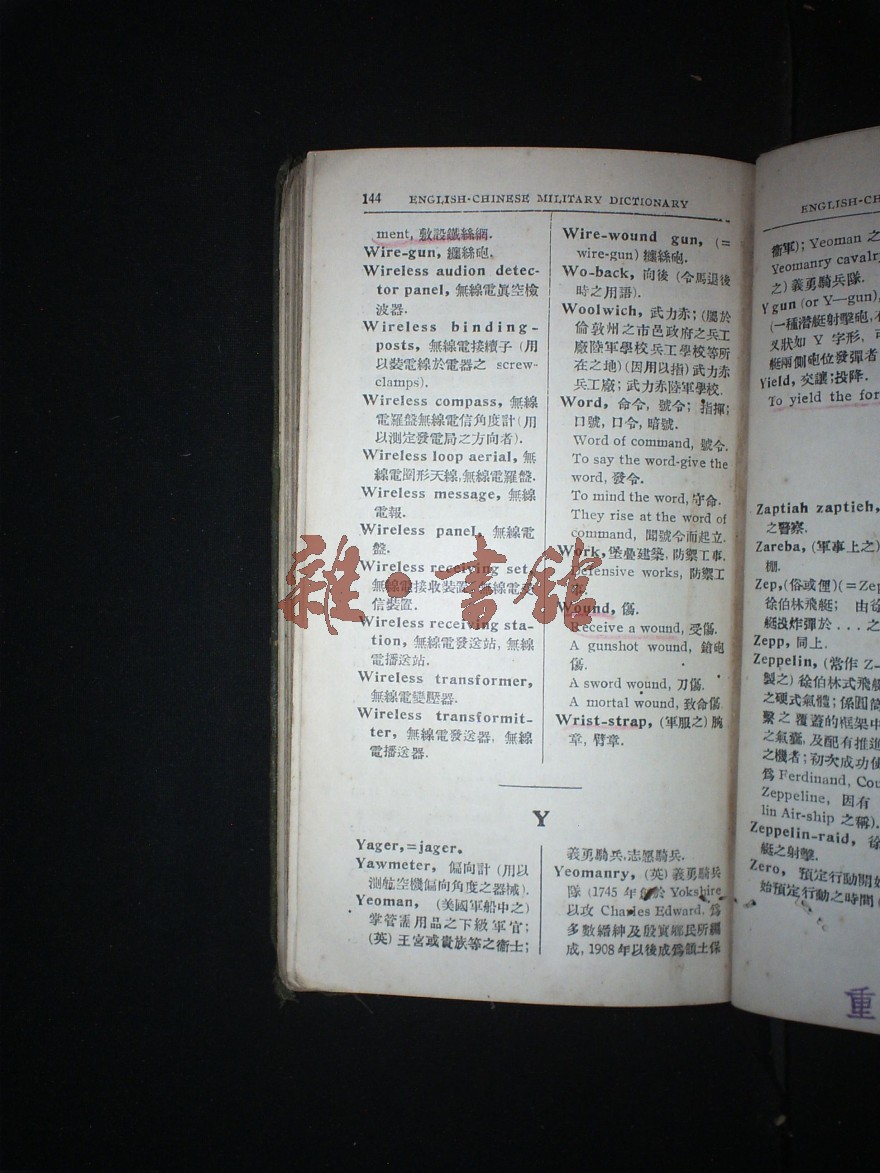 144 ENGLISH-CHINESE MILITARY DICTIONARY
ment, 敷設鐵絲網.
Wire-gun, 纏絲砲.
Wireless audion detec-
tor panel, 無線電眞空檢
波器.
Wireless binding-
posts, 無線電接續子 (用
以裝電線於電器之 screw-
clamps).
Wireless compass, 無線
電羅盤無線電信角度計(用
以測定發電局之方向者).
Wireless loop aerial, 無
線電圈形天線,無線電羅盤.
Wireless message, 無線
電報.
Wireless panel, 無線電
盤.
Wireless receiving set,
無線電接收裝置, 無線電
信裝置.
Wireless receiving sta-
tion, 無線電發送站, 無線
電播送站.
Wireless transformer,
無線電變壓器.
Wireless transformit-
ter, 無線電發送器, 無線
電播送器.
Wire-wound gun, (=
wire-gun) 纏絲砲.
Wo-back, 向後 (令馬退後
時之用語).
Woolwich, 武力赤; (屬於
倫敦州之市邑政府之兵工
廠陸軍學校兵工學校等所
在之地) (因用以指) 武力赤
兵工廠; 武力赤陸軍學校.
Word, 命令, 號令; 指揮;
口號, 口令, 暗號.
Word of command, 號令.
To say the word-give the
word, 發令.
To mind the word, 守命.
They rise at the word of
command, 聞號令而起立.
Work, 堡壘建築, 防禦工事.
Defensive works, 防禦工
Wound, 傷.
Receive a wound, 受傷.
A gunshot wound, 鎗砲
傷.
A sword wound, 刀傷.
A mortal wound, 致命傷.
Wrist-strap, (軍服之) 腕
章, 臂章.
Y
Yager,=jager.
Yawmeter, 偏向計 (用以
測航空機偏向角度之器械).
Yeoman, (美國軍船中之)
掌管需用品之下級軍官;
(英) 王宮或貴族等之衛士;
義勇騎兵,志愿騎兵.
Yeomanry, (英) 義勇騎兵
隊 (1745 年 於 Yokshire
以攻 Charles Edward, 爲
多數縉紳及殷實鄉民所編
成, 1908 年以後成爲領土保
ENGLISH-CH
衞軍); Yeoman 之
Yeomanry cavalry
之) 義勇騎兵隊.
Y gun (or Y—gun),
(一種潛艇射擊砲,
叉狀如 Y 字形,
艇兩側砲位發彈者
Yield, 交讓;投降.
To yield the for
Zaptiah zaptieh,
之警察.
Zareba, (軍事上之)
棚.
Zep,(俗或俚)(=Zep
徐伯林飛艇; 由徐
艇投炸彈於...之
Zepp, 同上.
Zeppelin, (常作 Z-
製之) 徐伯林式飛艇
之硬式氣體; 係圓筒
繫之覆蓋的框架中
之氣囊,及配有推進
之機者; 初次成功使
爲 Ferdinand, Cou
Zeppeline, 因有
lin Air-ship 之稱).
Zeppelin-raid, 徐
艇之射擊.
Zero, 預定行動開始
始預定行動之時間
雜·書館
重